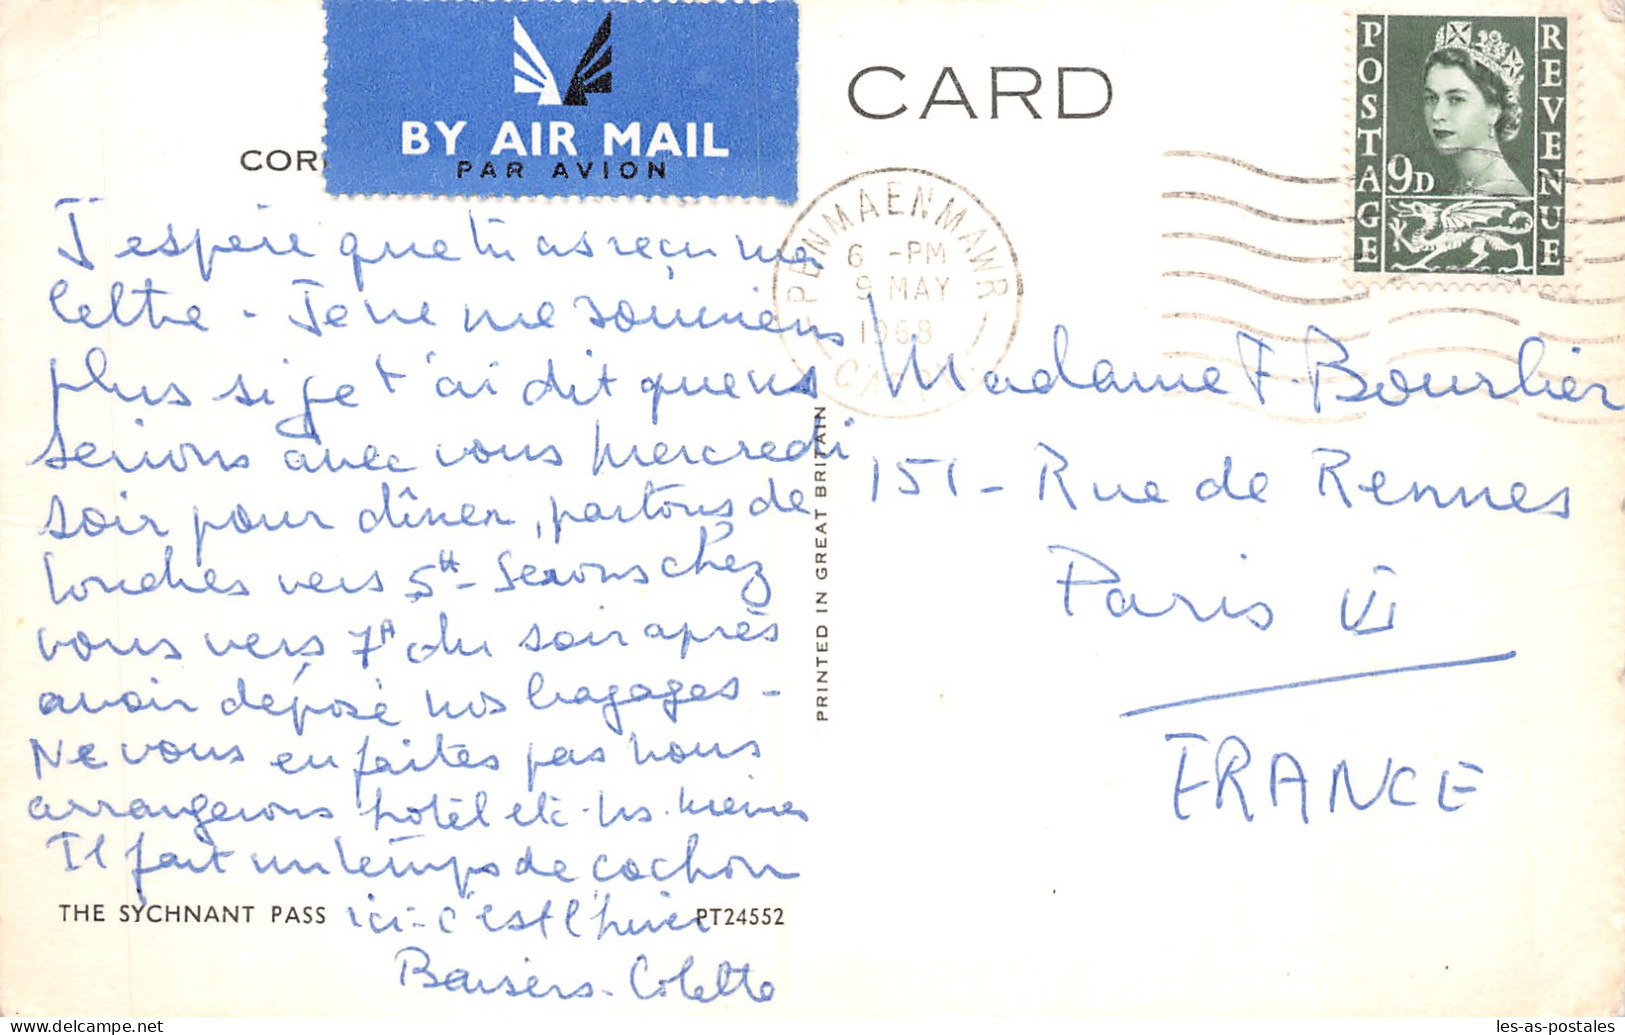 BY AIR MAIL
PAR AVION
COR
CARD
POSTAGE
REVENUE
9D
PENMAENMAWR
6 - PM
9 MAY
1968
CAERNS
J'espère que tu as reçu ma
lettre - Je ne me souviens
plus si je t'ai dit que ns
serions avec vous mercredi
soir pour dîner, partons de
Londres vers 5H - Serons chez
vous vers 7H du soir après
avoir déposé nos bagages -
Ne vous en faites pas nous
arrangerons hotêl etc. ns. mêmes
Il fait un temps de cochon
ici - c'est l'hiver
Baisers - Colette
Madame F. Bourlier
151 - Rue de Rennes
Paris VI
FRANCE
PRINTED IN GREAT BRITAIN
THE SYCHNANT PASS
PT24552
les-as-postales